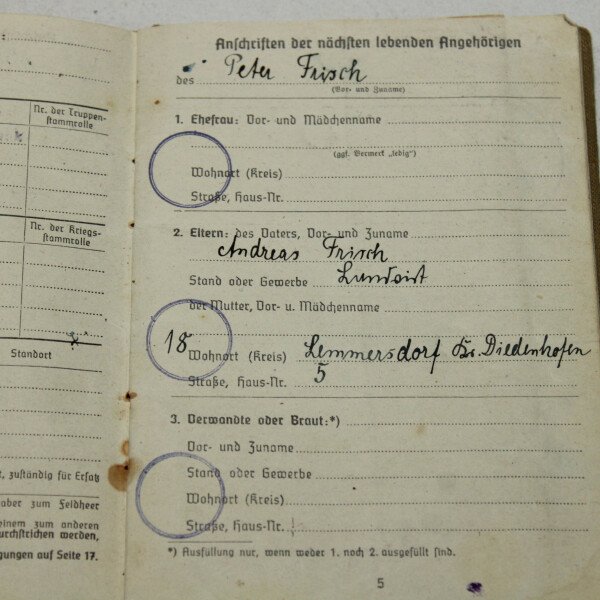 Nr. der Truppen-
stammrolle
Nr. der Kriegs-
stammrolle
Standort
, zuständig für Ersatz
aber zum Feldheer
einem zum anderen
durchstrichen werden,
gungen auf Seite 17.
Anschriften der nächsten lebenden Angehörigen
des Peter Frisch
(Vor- und Zuname)
1. Ehefrau: Vor- und Mädchenname
(ggf. Vermerk „ledig")
Wohnort (Kreis)
Straße, Haus-Nr.
2. Eltern: des Vaters, Vor- und Zuname
Andreas Frisch
Stand oder Gewerbe
der Mutter, Vor- u. Mädchenname
18 Wohnort (Kreis) Lemmersdorf Kr. Diedenhofen
Straße, Haus-Nr. 5
3. Verwandte oder Braut:*)
Vor- und Zuname
Stand oder Gewerbe
Wohnort (Kreis)
Straße, Haus-Nr.
*) Ausfüllung nur, wenn weder 1. noch 2. ausgefüllt sind.
5